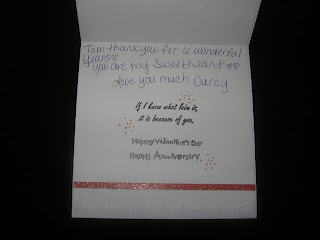 Tom thankyou for 6 wonderful
years♡
you are my Sweetheart ♡♡
Love you much Darcy
If I know what love is,
it is because of you.
Happy Valentine's Day
Happy Anniversary.